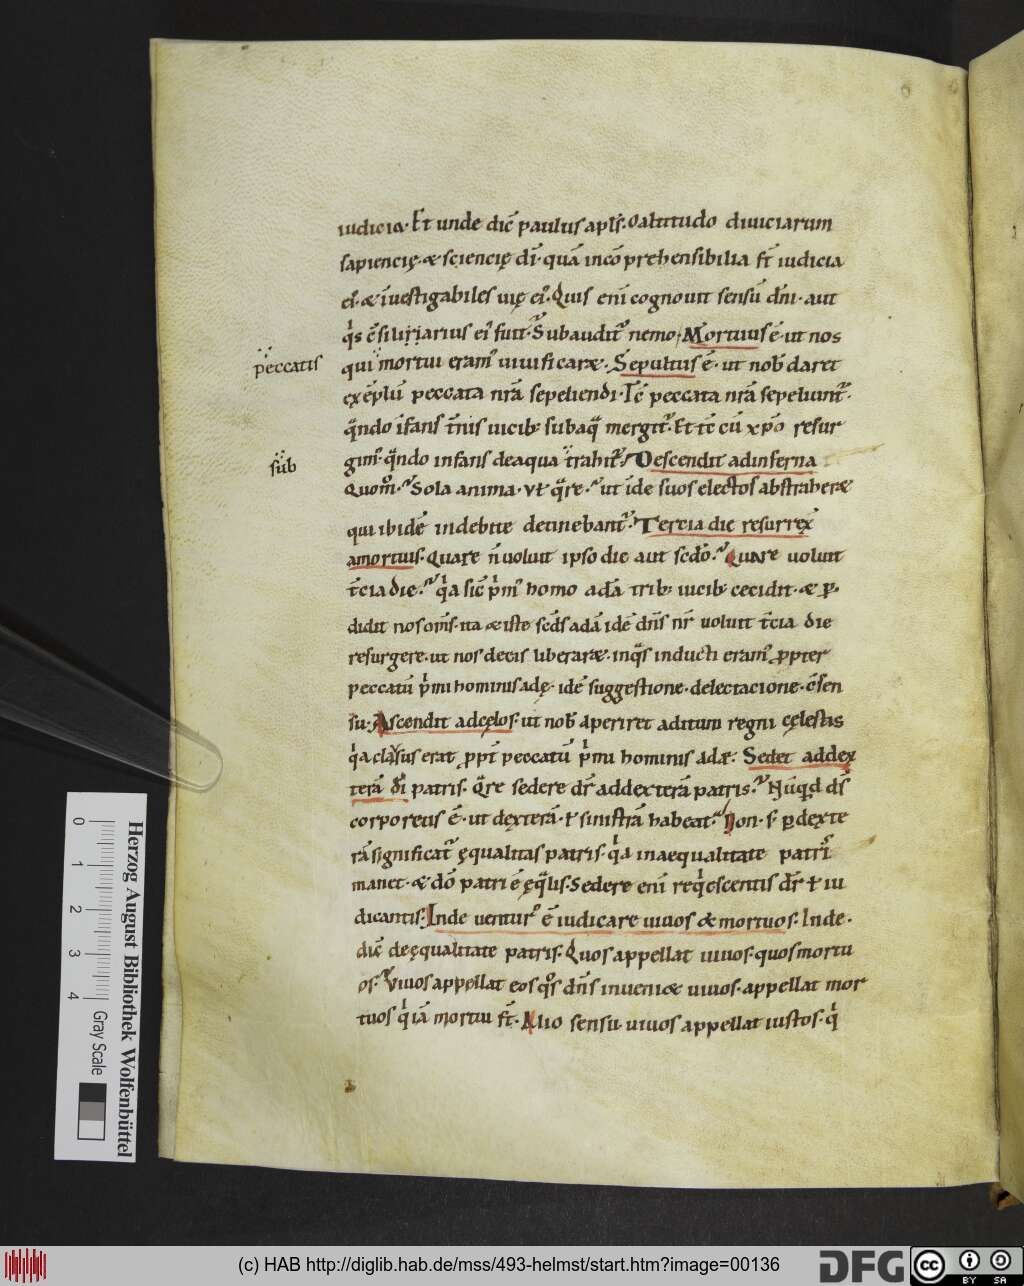 iudicia. Et unde dic̄ paulus apl̄s. O altitudo diuiciarum
sapiencię. & sciencię dī. quā incōprehensibilia st̄ iudicia
ei᷒. & īuestigabiles uię ei᷒. Quis enī cognouit sensū dn̄i. aut
qͥs c̄siliarius ei᷒ fuit. Subaudit᷒ nemo. Mortuus ē. ut nos
peccatis
qui mortui eram᷒ uiuificaræ. Sepultus ē. ut nob̄ daret
exēplū peccata nr̄a sepeliendi. Tc̄ peccata nr̄a sepeliunt᷒.
qn̄do īfans t̄nis uicib; sub aqͣ mergit᷒. Et tc̄ cū xp̄o resur
sub
gim᷒. qn̄do infans de aqua trahit᷒. Descendit ad inferna
Quom̊. Sola anima. vł qͣre. ut īde suos electos abstraheræ
qui ibidē indebite detinebant᷒. Tercia die resurrex̄
a mortuis. Quare n̄ uoluit ipso die aut scd̄o. Quare uoluit
t̄cia die. qͥa sic̄ pͥm᷒ homo adā trib; uicib; cecidit. & ꝑ
didit nos om̄s. ita & iste scd̄s adā idē dn̄s nr̄ uoluit t̄cia die
resurgere. ut nos de eis liberaræ. in qͥs inducti eram᷒ ꝓpter
peccatū pͥmi hominis adę. idē suggestione. delectacione. c̄sen
su. Ascendit ad cęlos. ut nob̄ aperiret aditum regni cęlestis
qͥa clausus erat ꝓpt̄ peccatū pͥmi hominis adæ. Sedet ad dex
terā dī patris. Qͣre sedere dr̄ ad dexterā patris. Nūqͥd ds̄
corporeus ē. ut dexterā. ł sinistrā habeat. Non. s; ꝑ dexte
rā significat᷒ ęqualitas patris. qͥa in aequalitate patri᷒
manet. & dō patri ē ęqͣlis. Sedere enī reqͥescentis dr̄ ł iu
dicantis. Inde uentur᷒ ē iudicare uiuos & mortuos. Inde.
dic̄ de ęqualitate patris. Quos appellat uiuos. quos mortu
os. Viuos appellat eos qͦs dn̄s inueniæ uiuos. appellat mor
tuos qͥ iā mortui st̄. Alio sensu uiuos appellat iustos. qͥ
Herzog August Bibliothek Wolfenbüttel
0 1 2 3 4
Gray Scale
(c) HAB http://diglib.hab.de/mss/493-helmst/start.htm?image=00136
DFG
cc BY SA